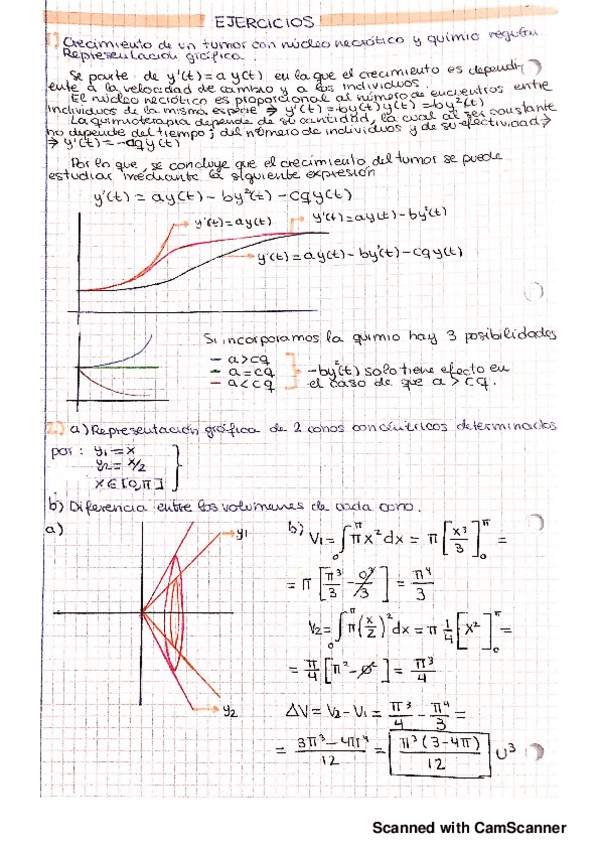 EJERCICIOS
1) Crecimiento de un tumor con núcleo necrótico y quimio regular
Representación gráfica.
Se parte de y'(t) = a y(t) en la que el crecimiento es dependi-
ente a la velocidad de cambio y a los individuos.
El núcleo necrótico es proporcional al número de encuentros entre
individuos de la misma especie ⇒ y'(t) = -by(t) y(t) = -by²(t)
La quimioterapia depende de su cantidad, la cual al ser constante
no depende del tiempo; del número de individuos y de su efectividad ⇒
⇒ y'(t) = -cqy(t)
Por lo que, se concluye que el crecimiento del tumor se puede
estudiar mediante la siguiente expresión
y'(t) = ay(t) - by²(t) - cqy(t)
y'(t) = ay(t)
y'(t) = ay(t) - by²(t)
y'(t) = ay(t) - by²(t) - cqy(t)
Si incorporamos la quimio hay 3 posibilidades
— a > cq
— a = cq
— a < cq
-by²(t) solo tiene efecto en
el caso de que a > cq.
2.) a) Representación gráfica de 2 conos concéntricos determinados
por: y₁ = x
y₂ = x/2
x ∈ [0, π]
b) Diferencia entre los volúmenes de cada cono.
a)
y₁
y₂
b) V₁ = ∫₀^π π x² dx = π [x³/3]₀^π =
= π [π³/3 - 0³/3] = π⁴/3
V₂ = ∫₀^π π (x/2)² dx = π 1/4 [x²]₀^π =
= π/4 [π² - 0²] = π³/4
ΔV = V₂ - V₁ = π³/4 - π⁴/3 =
= 3π³ - 4π⁴/12 = π³(3 - 4π)/12 U³
Scanned with CamScanner